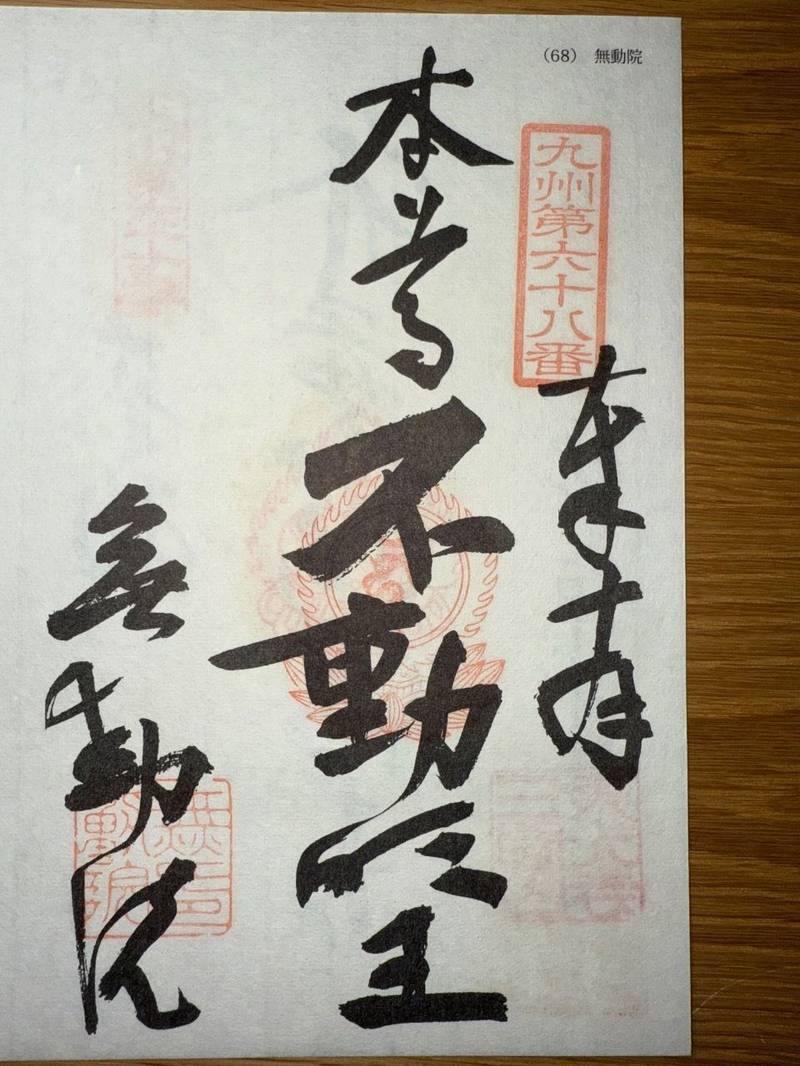 (68) 無動院
九州第六十八番
奉拝
本尊
不動明王
無動院